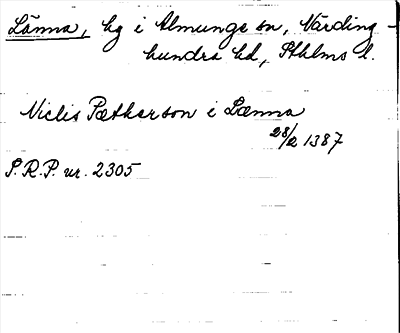 Länna, by i Almunge sn, Närding-
hundra hd, Sthlms l.
Niclis Pætharson i Lænna
28/2 1387
S.R.P. nr. 2305